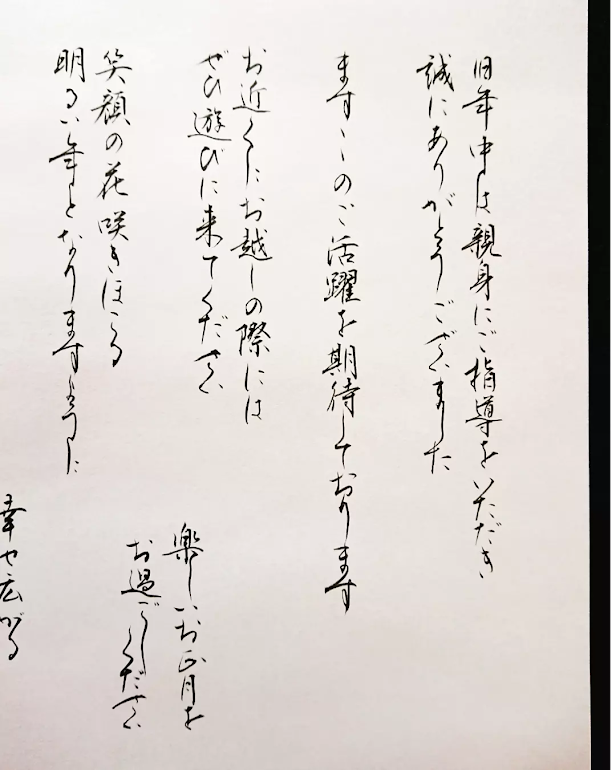 旧年中は親身にご指導をいただき
誠にありがとうございました
ますますのご活躍を期待しております
お近くにお越しの際には
ぜひ遊びに来てください
笑顔の花咲きほこる
明るい年となりますように
楽しいお正月を
お過ごしください
幸せ広がる